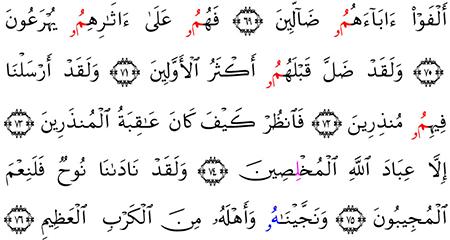 أَلْفَوْاْ ءَابَآءَهُمُۥ ضَآلِّينَ ﴿٦٩﴾ فَهُمُۥ عَلَىٰٓ ءَاثَٰرِهِمُۥ يُهْرَعُونَ
﴿٧٠﴾ وَلَقَدْ ضَلَّ قَبْلَهُمُۥٓ أَكْثَرُ الْأَوَّلِينَ ﴿٧١﴾ وَلَقَدْ أَرْسَلْنَا
فِيهِمُۥ مُنذِرِينَ ﴿٧٢﴾ فَانظُرْ كَيْفَ كَانَ عَٰقِبَةُ الْمُنذَرِينَ ﴿٧٣﴾
إِلَّا عِبَادَ اللَّهِ الْمُخْلِصِينَ ﴿٧٤﴾ وَلَقَدْ نَادَىٰنَا نُوحٌ فَلَنِعْمَ
الْمُجِيبُونَ ﴿٧٥﴾ وَنَجَّيْنَٰهُۥ وَأَهْلَهُۥ مِنَ الْكَرْبِ الْعَظِيمِ ﴿٧٦﴾